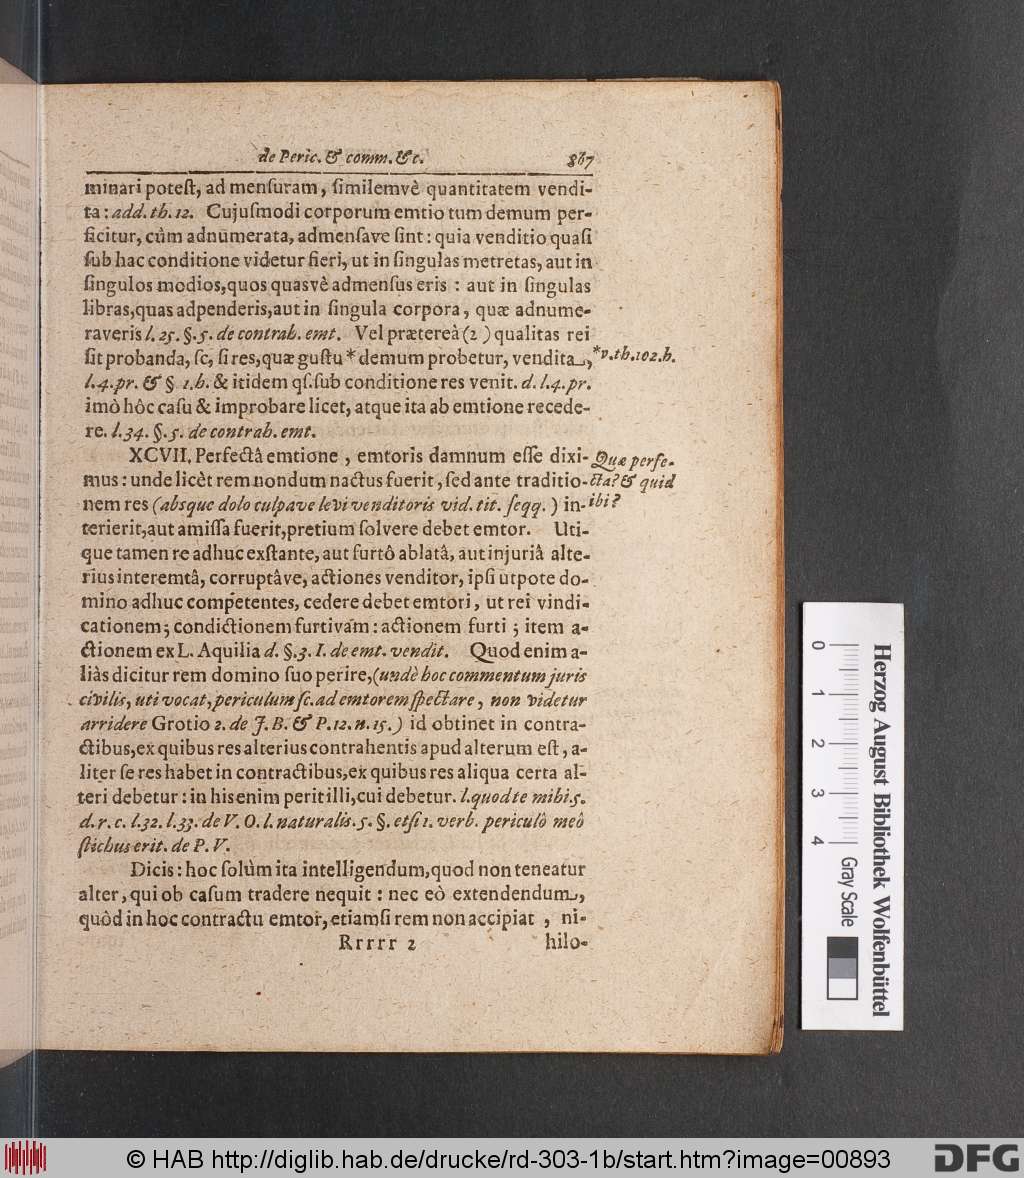 de Peric. & comm. &c. 867
minari potest, ad mensuram, similemvè quantitatem vendi-
ta: add. th. 12. Cujusmodi corporum emtio tum demum per-
ficitur, cùm adnumerata, admensave sint: quia venditio quasi
sub hac conditione videtur fieri, ut in singulas metretas, aut in
singulos modios, quos quasvè admensus eris: aut in singulas
libras, quas adpenderis, aut in singula corpora, quæ adnume-
raveris l. 25. §. 5. de contrah. emt. Vel prætereà (2) qualitas rei
sit probanda, sc, si res, quæ gustu * demum probetur, vendita,
*v. th. 102. h.
l. 4. pr. & § 1. h. & itidem qs. sub conditione res venit. d. l. 4. pr.
imò hôc casu & improbare licet, atque ita ab emtione recede-
re. l. 34. §. 5. de contrah. emt.
XCVII. Perfectâ emtione, emtoris damnum esse dixi-
Quæ perfe-
mus: unde licèt rem nondum nactus fuerit, sed ante traditio-
cta? & quid
nem res (absque dolo culpave levi venditoris vid. tit. seqq.) in-
ibi?
terierit, aut amissa fuerit, pretium solvere debet emtor. Uti-
que tamen re adhuc exstante, aut furtô ablatâ, aut injuriâ alte-
rius interemtâ, corruptâve, actiones venditor, ipsi utpote do-
mino adhuc competentes, cedere debet emtori, ut rei vindi-
cationem; condictionem furtivam: actionem furti; item a-
ctionem ex L. Aquilia d. §. 3. I. de emt. vendit. Quod enim a-
liàs dicitur rem domino suo perire, (undè hoc commentum juris
civilis, uti vocat, periculum sc. ad emtorem spectare, non videtur
arridere Grotio 2. de J. B. & P. 12. n. 15.) id obtinet in contra-
ctibus, ex quibus res alterius contrahentis apud alterum est, a-
liter se res habet in contractibus, ex quibus res aliqua certa al-
teri debetur: in his enim perit illi, cui debetur. l. quod te mihi 5.
d. r. c. l. 32. l. 33. de V. O. l. naturalis. 5. §. etsi 1. verb. periculô meô
stichus erit. de P. V.
Dicis: hoc solùm ita intelligendum, quod non teneatur
alter, qui ob casum tradere nequit: nec eò extendendum,
quòd in hoc contractu emtor, etiamsi rem non accipiat, ni-
Rrrrr 2 hilo-
0 1 2 3 4
Gray Scale
Herzog August Bibliothek Wolfenbüttel
© HAB http://diglib.hab.de/drucke/rd-303-1b/start.htm?image=00893
DFG